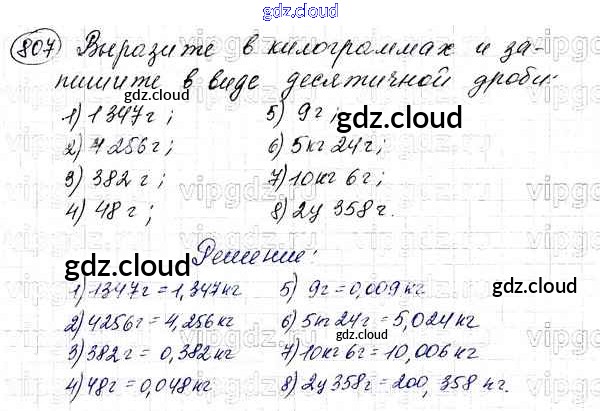 gdz.cloud
807 Выразите в килограммах и за-
пишите в виде десятичной дроби:
gdz.cloud
1) 1347г; 5) 9г;
gdz.cloud
2) 4256г; 6) 5кг 24г;
3) 382г; 7) 10кг 6г;
4) 48г; 8) 2ц 358г.
Решение:
gdz.cloud
1) 1347г = 1,347кг 5) 9г = 0,009кг
gdz.cloud
2) 4256г = 4,256кг 6) 5кг 24г = 5,024кг
3) 382г = 0,382кг 7) 10кг 6г = 10,006кг
gdz.cloud
4) 48г = 0,048кг 8) 2ц 358г = 200,358кг.